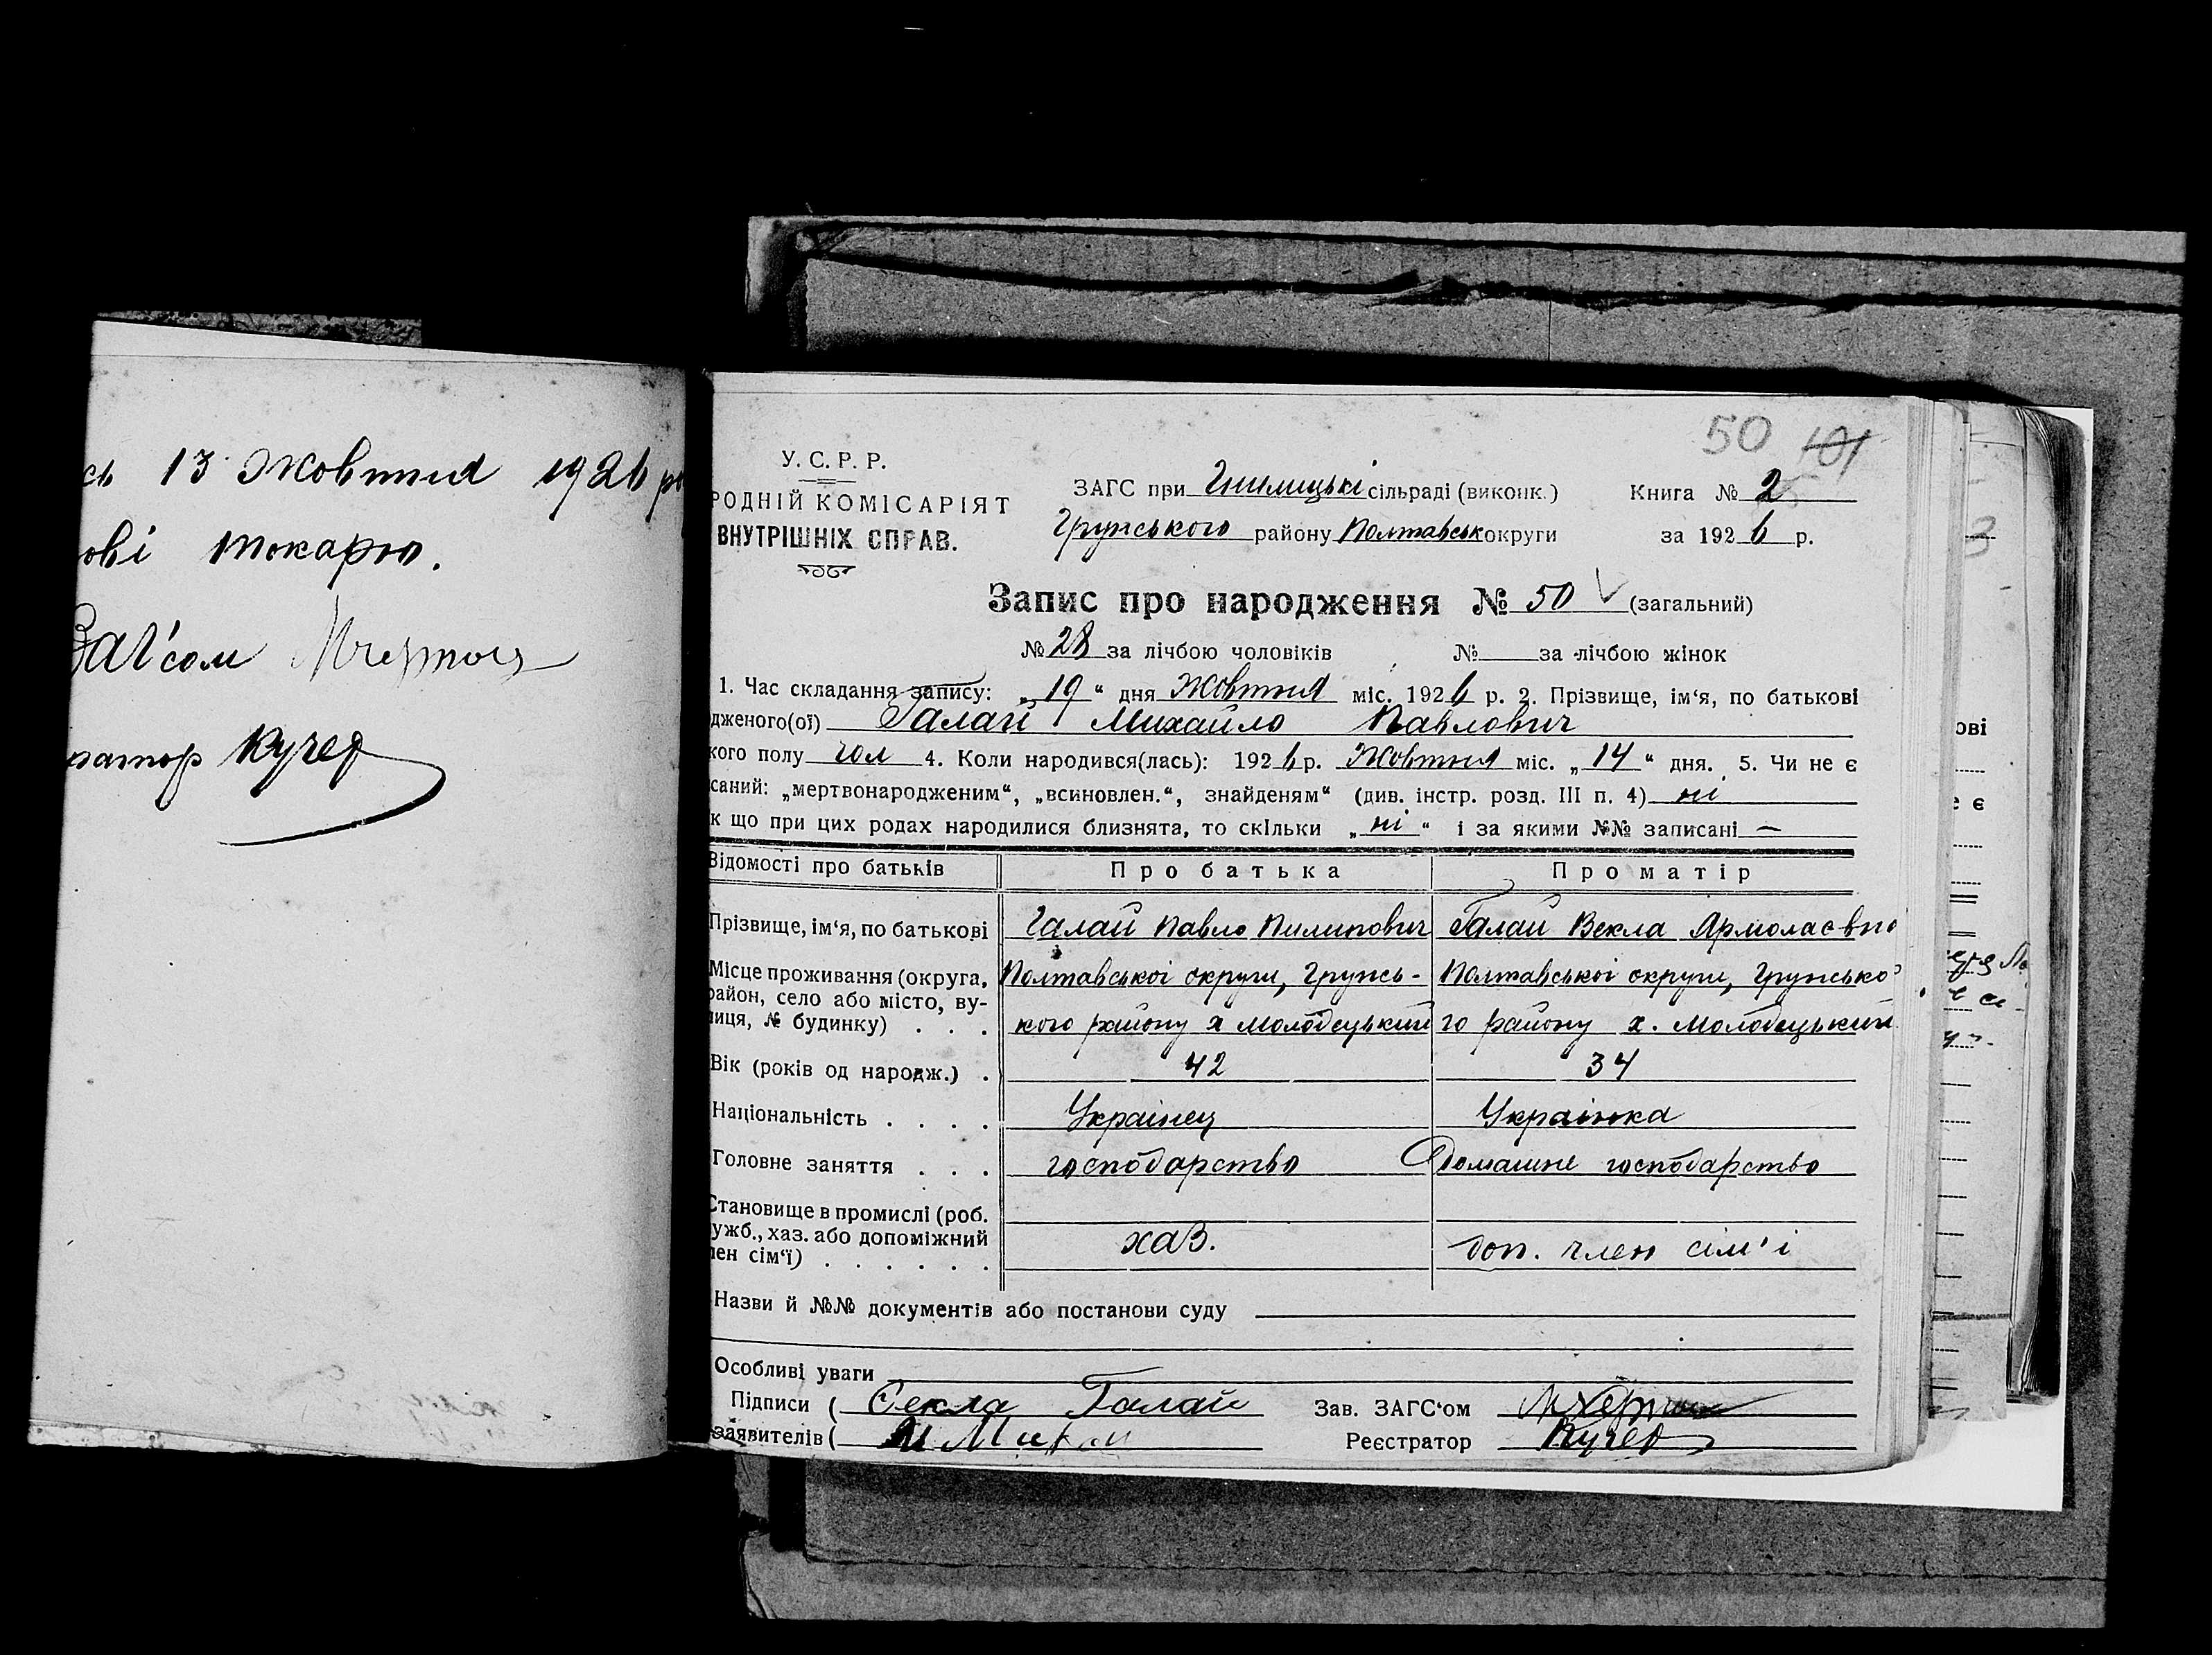 сь 13 Жовтня 1926 ро
ові токарю.
Заг'сом
ратор Кучер
50 101
У. С. Р. Р.
РОДНІЙ КОМІСАРІЯТ
ВНУТРІШНІХ СПРАВ.
ЗАГС при Гнилицькі сільраді (виконк.) Книга № 2
Грунського району Полтавськ округи за 1926 р.
Запис про народження № 50 (загальний)
№ 28 за лічбою чоловіків № за лічбою жінок
1. Час складання запису: „19“ дня Жовтня міс. 1926 р. 2. Прізвище, ім‘я, по батькові
дженого(ої) Галай Михайло Павлович
кого полу чол 4. Коли народився(лась): 1926 р. Жовтня міс. „14“ дня. 5. Чи не є
саний: „мертвонародженим“, „всиновлен.“, знайденям“ (див. інстр. розд. III п. 4) ні
к що при цих родах народилися близнята, то скільки „ні“ і за якими №№ записані —
Відомості про батьків Про батька Про матір
Прізвище, ім‘я, по батькові Галай Павло Пилипович Галай Векла Армолаєвна
Місце проживання (округа, Полтавської округи, Грунсь- Полтавської округи, Грунсько
район, село або місто, ву-
лиця, № будинку) . . . кого району х Молодецький го району х. Молодецький
Вік (років од народж.) . 42 34
Національність . . . . Українец Українка
Головне заняття . . . господарство Домашне господарство
Становище в промислі (роб.
ужб., хаз. або допоміжний хаз. доп. член сім'ї
лен сім‘ї) . . . . . .
Назви й №№ документів або постанови суду
Особливі уваги
Підписи ( Секла Галай Зав. ЗАГС‘ом
заявителів ( Реєстратор Кучер
ові
е є